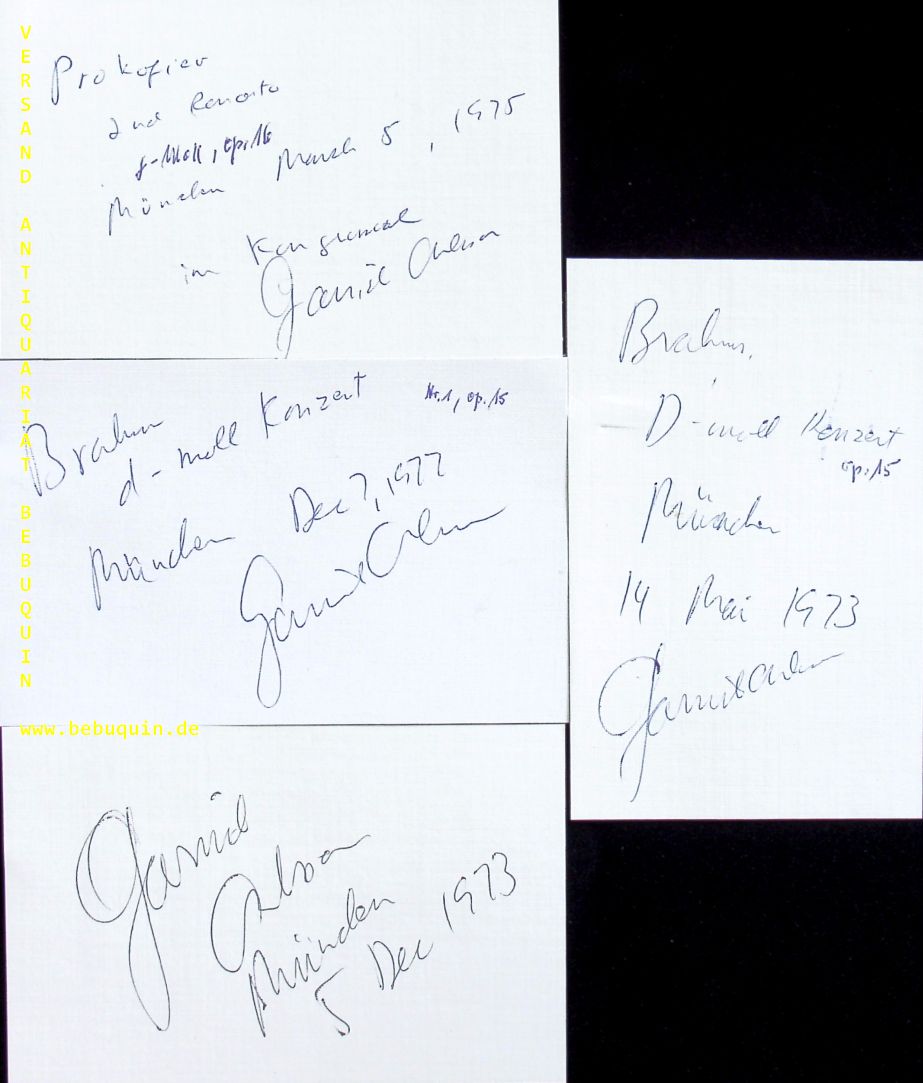 VERSAND ANTIQUARIAT BEBUQUIN
www.bebuquin.de
Prokofiev
2nd Konzerto
g-Moll, op. 16
München March 5, 1975
im Kongressaal
Garrick Ohlsson
Brahms
d-moll Konzert Nr. 1, op. 15
München Dec 7, 1977
Garrick Ohlsson
Garrick
Ohlsson
München
5 Dec 1973
Brahms,
D-moll Konzert
op. 15
München
14 Mai 1973
Garrick Ohlsson